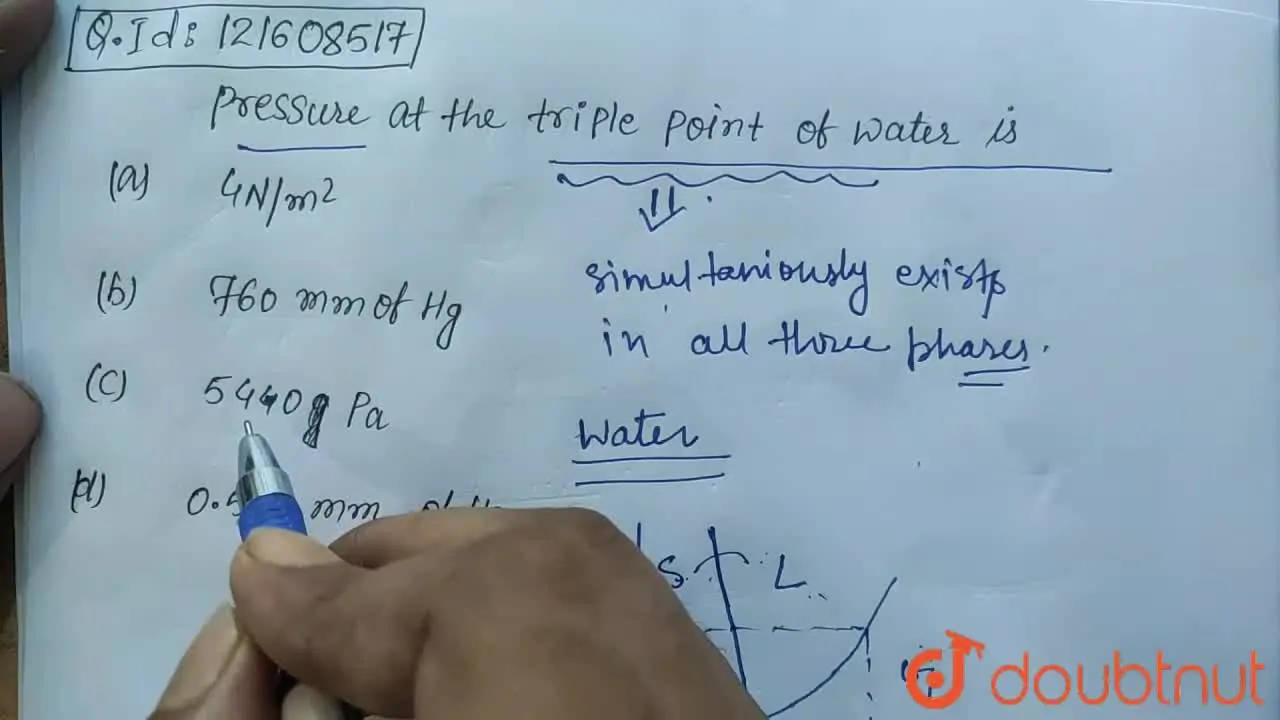 Q.Id: 121608517
Pressure at the triple point of water is
(a) 4N/m²
(b) 760 mm of Hg
(c) 5440 Pa
(d) mm
simultaniously exists
in all three phases.
Water
S L
doubtnut